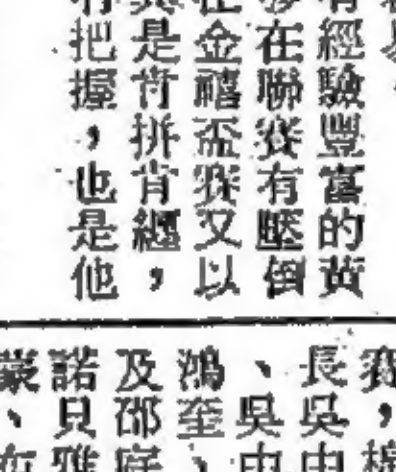 有經驗豐富的黃
在聯賽有壓倒
在金禧盃賽又以
是肯拼肯纏，
有把握，也是他
賽，
長吳
、吳
鴻奎、
及邵庭
諾貝雅
蒙、